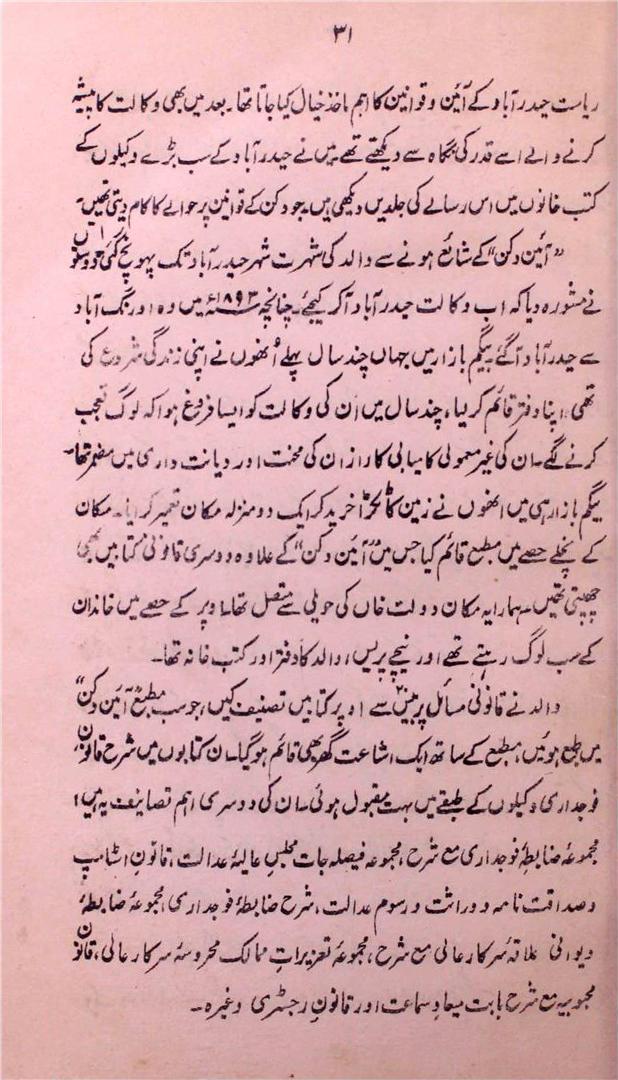 ۳۱
ریاست حیدرآباد کے آئین و قوانین کا اہم ماخذ خیال کیا جاتا تھا۔ بعد میں بھی وکالت کا پیشہ
کرنے والے اسے قدر کی نگاہ سے دیکھتے تھے۔ میں نے حیدرآباد کے سب بڑے وکیلوں کے
کتب خانوں میں اس رسالے کی جلدیں دیکھی ہیں۔ جو دکن کے قوانین پر حوالے کا کام دیتی تھیں۔
”آئین دکن“ کے شائع ہونے سے والد کی شہرت شہر حیدرآباد تک پہونچ گئی۔ دوستوں
نے مشورہ دیا کہ اب وکالت حیدرآباد آ کر کیجئے۔ چنانچہ ۱۸۹۳ء میں وہ اورنگ آباد
سے حیدرآباد آگئے۔ بیگم بازار میں جہاں چند سال پہلے اُنھوں نے اپنی زندگی شروع کی
تھی، اپنا دفتر قائم کر لیا، چند سال میں اُن کی وکالت کو ایسا فروغ ہوا کہ لوگ تعجب
کرنے لگے۔ ان کی غیر معمولی کامیابی کا راز ان کی محنت اور دیانت داری میں مضمر تھا۔
بیگم بازار ہی میں انھوں نے زمین کا ٹکڑا خرید کر ایک دو منزلہ مکان تعمیر کرایا۔ مکان
کے نچلے حصے میں مطبع قائم کیا جس میں ”آئین دکن“ کے علاوہ دوسری قانونی کتابیں بھی
چھپتی تھیں۔ ہمارا یہ مکان دولت خاں کی حویلی سے متصل تھا۔ اوپر کے حصے میں خاندان
کے سب لوگ رہتے تھے اور نیچے پریس، والد کا دفتر اور کتب خانہ تھا۔
والد نے قانونی مسائل پر بیس۲۰ سے اوپر کتابیں تصنیف کیں، جو سب مطبع ”آئین دکن“
میں طبع ہوئیں، مطبع کے ساتھ ایک اشاعت گھر بھی قائم ہو گیا۔ ان کتابوں میں شرح قانون
فوجداری وکیلوں کے طبقے میں بہت مقبول ہوئی۔ ان کی دوسری اہم تصانیف یہ ہیں؛
مجموعۂ ضابطۂ فوجداری مع شرح، مجموعہ فیصلہ جات مجلسِ عالیۂ عدالت، قانونِ اسٹامپ
و صداقت نامہ و وراثت و رسوم عدالت، شرح ضابطۂ فوجداری، مجموعۂ ضابطۂ
دیوانی علاقۂ سرکار عالی مع شرح، مجموعۂ تعزیراتِ ممالک محروسۂ سرکار عالی، قانون
محبوبیہ مع شرح بابت میعادِ سماعت اور قانونِ رجسٹری وغیرہ۔